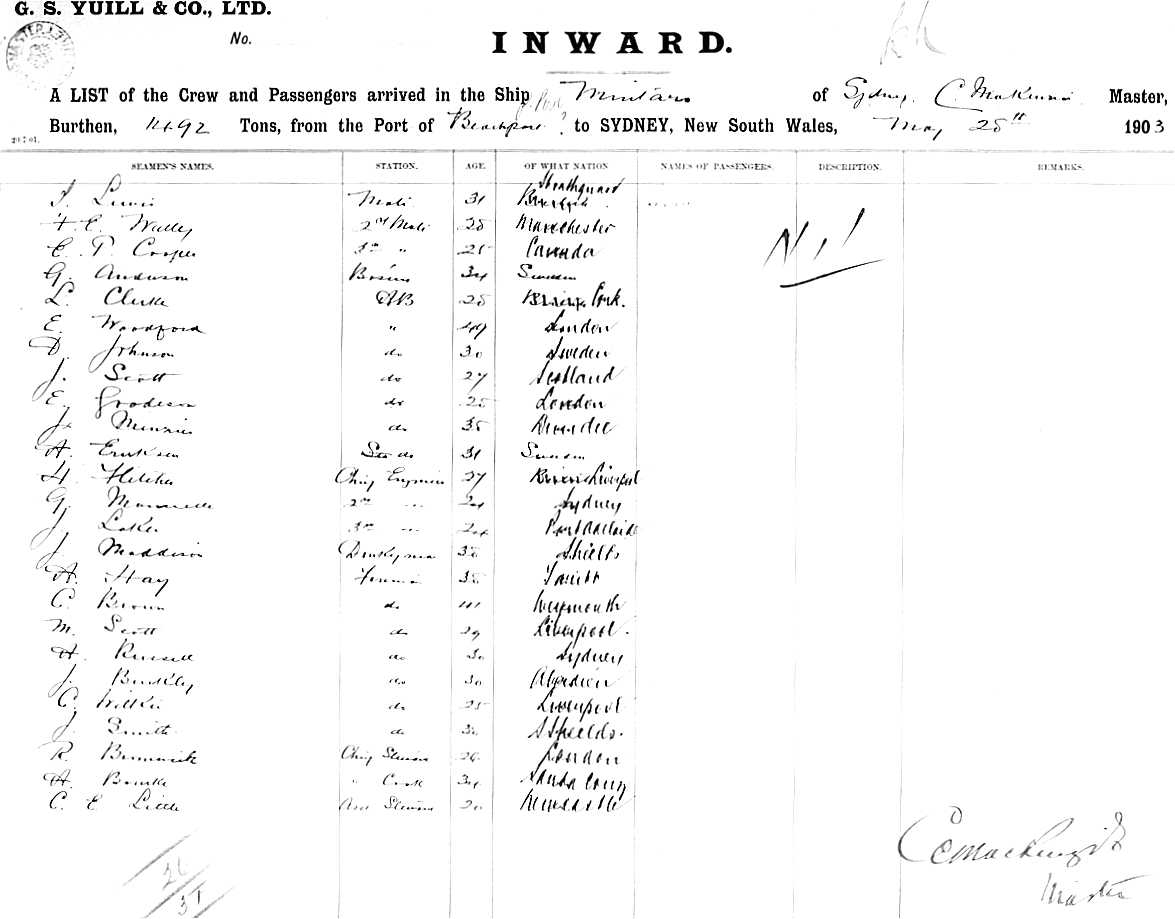 G. S. YUILL & CO., LTD.
No.
INWARD.
A LIST of the Crew and Passengers arrived in the Ship Mintaro of Sydney, C. Master,
Burthen, 1492 Tons, from the Port of Beachport to SYDNEY, New South Wales, May 28th 1903
SEAMEN'S NAMES. STATION. AGE. OF WHAT NATION NAMES OF PASSENGERS. DESCRIPTION. REMARKS.
Lewis Mate 31
2nd Mate 28 Manchester
C. P. Cooper 3rd " 25 Canada
G. Anderson Bosun 34 Sweden
L. Clarke AB 28 Cork.
E. Woodford " 49 London
D. Johnson do 30 Sweden
J. Scott do 27 Scotland
E. do 25 London
J. Menzies do 35 Dundee
A. Eriksen do 31 Sweden
H. Fletcher Chief Engineer 27 Liverpool
G. 2nd 24 Sydney
J. Laker 3rd 24 Port Adelaide
J. Maddison Donkeyman Shields
A. Hay Fireman
C. Brown do Weymouth
M. Scott do 29 Liverpool.
H. Russell do 30 Sydney
J. do 30 Aberdeen
C. Wilkie do 25 Liverpool
J. Smith do S Shields.
R. Chief Steward London
A. " Cook 34 Santa Cruz
C. E Little Steward 20 Newcastle
Nil
26
31
Master